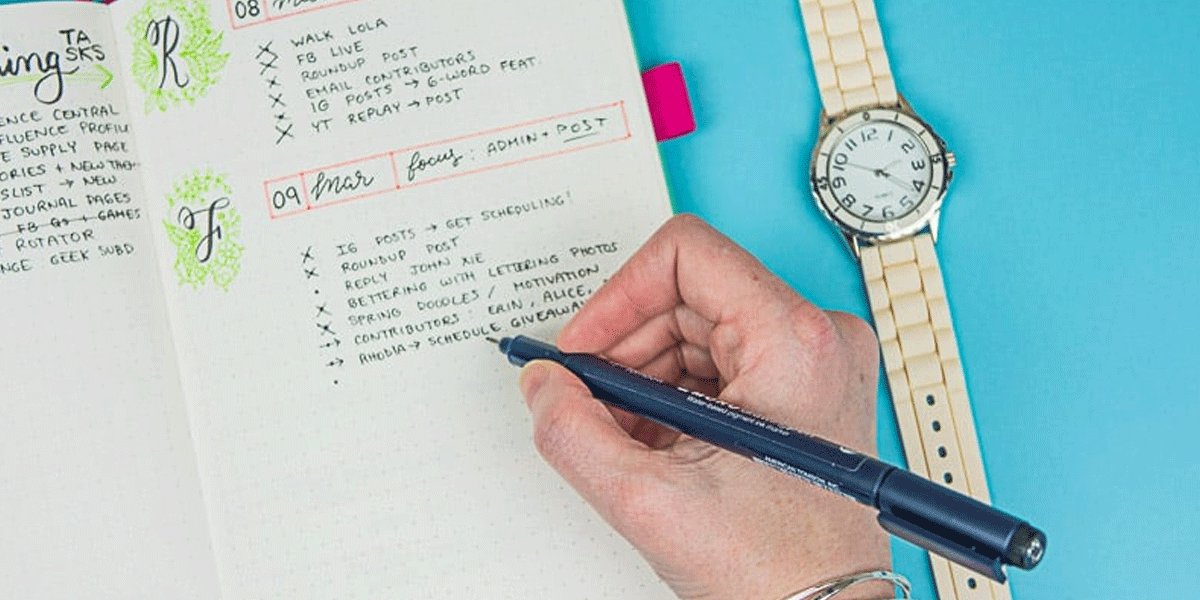 TA
SKS
ing
ENCE CENTRAL
FLUENCE PROFILE
E SUPPLY PAGE
ORIES + NEW
SLIST → NEW
JOURNAL PAGES
FB Qs + GAMES
ROTATOR
NGE GEEK SUBD
R
08
WALK LOLA
FB LIVE
ROUNDUP POST
EMAIL CONTRIBUTORS
IG POSTS → 6-WORD FEAT.
YT REPLAY → POST
F
09 Mar focus: ADMIN + POST
IG POSTS → GET SCHEDULING!
ROUNDUP POST
REPLY JOHN NE
BETTERING WITH LETTERING PHOTOS
SPRING DOODLES / MOTIVATION
CONTRIBUTORS: ERIN, ALICE,
RHODIA → SCHEDULE GIVEAWA
12
1
2
3
4
5
6
7
8
9
10
11
Water-based pigment ink marker